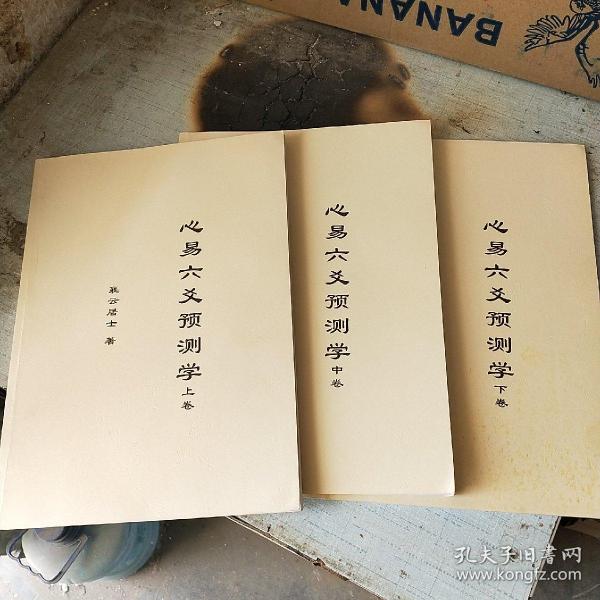 BANANA
心易六爻预测学
上卷
云居士 著
心易六爻预测学
中卷
心易六爻预测学
下卷
孔夫子旧書网
www.kongfz.com